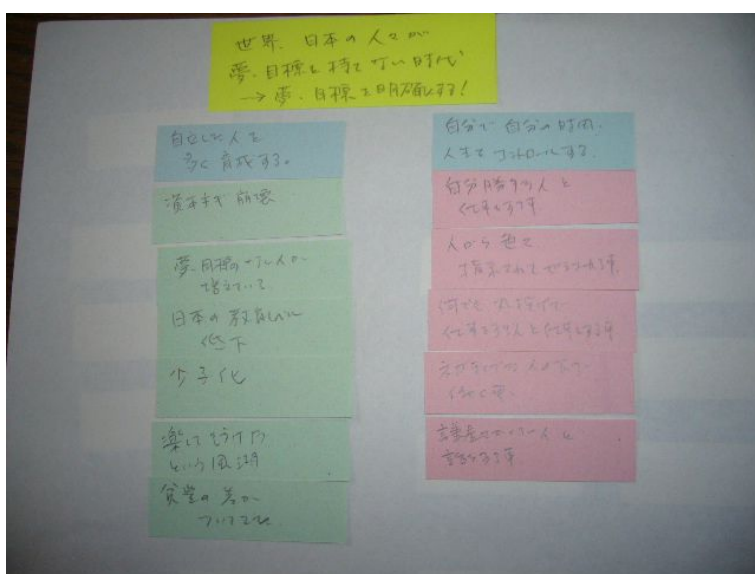 世界、日本の人々が
夢、目標を持てない時代
→ 夢、目標を明確にする!
自立した人を
多く育成する。
資本主 崩壊
夢、目標のない人が
増えている
日本の教育レベル
低下
少子化
楽してもうけた
という風潮
貧富の差が
ついてきた
自分で 自分の時間、
人生をコントロールする
自分勝手の人と
仕事をする事
人から
指示されて
仕事をする人と仕事をする事
人の下で
働く事
人と
話をする事